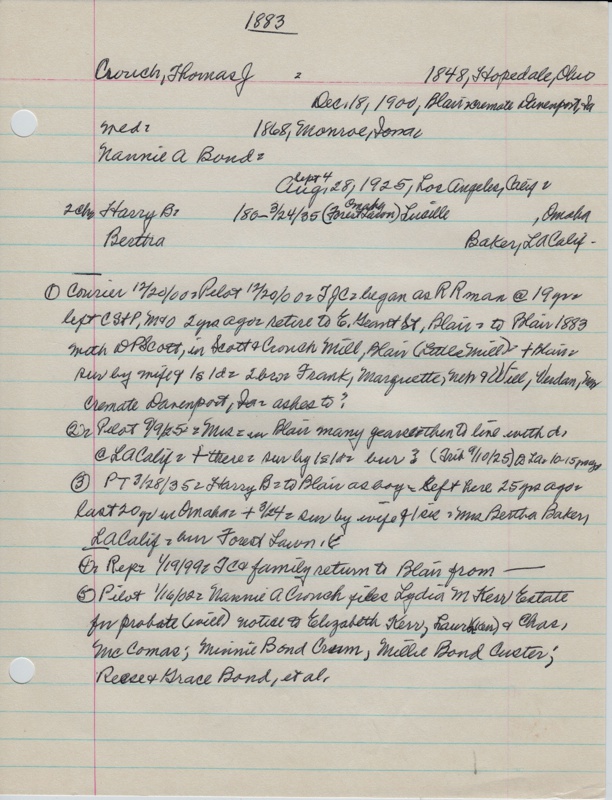 1883
Crouch, Thomas J = 1848, Hopedale, Ohio
Dec. 18, 1900, Blair = cremate Davenport, Ia
med = 1868, Monroe, Iowa
Nannie A Bond =
Sept 4
Aug. 28, 1925, Los Angeles, Calif =
Omaha
2 ch = Harry B = 180 - 3/24/35 (Forest Lawn) Lucille , Omaha
Bertha Baker, LA Calif -
① Courier 12/20/00 = Pilot 12/20/00 = TJC = began as RR man @ 19 yrs =
left CStP, M&O 2 yrs ago = retire to E. Grant St, Blair = to Blair 1883
with DP Scott, in Scott & Crouch Mill, Blair (Little Mill) + Blair =
sur by wife & 1s 1d = 2 bro = Frank, Marquette, Neb & Will, Verdon,
Cremate Davenport, Ia = ashes to ?
② = Pilot 9/9/25 = Mrs = in Blair many years = then to live with d.
@ LA Calif = + there = sur by 1s 1d = bur ? (Trib 9/10/25)
③ PT 3/28/35 = Harry B = to Blair as boy = Left here 25 yrs ago =
last 20 yr in Omaha = + 3/24 = sur by wife & 1 sis = Mrs Bertha Baker,
LA Calif = bur Forest Lawn.
④ = Rep = 1/19/99 = TC & family return to Blair from —
⑤ Pilot 1/16/02 = Nannie A Crouch files Lydia M Kerr Estate
for probate (will) notice to Elizabeth Kerr, & Chas.
McComas; Minnie Bond Crum, Millie Bond Custer;
Reese & Grace Bond, et al.